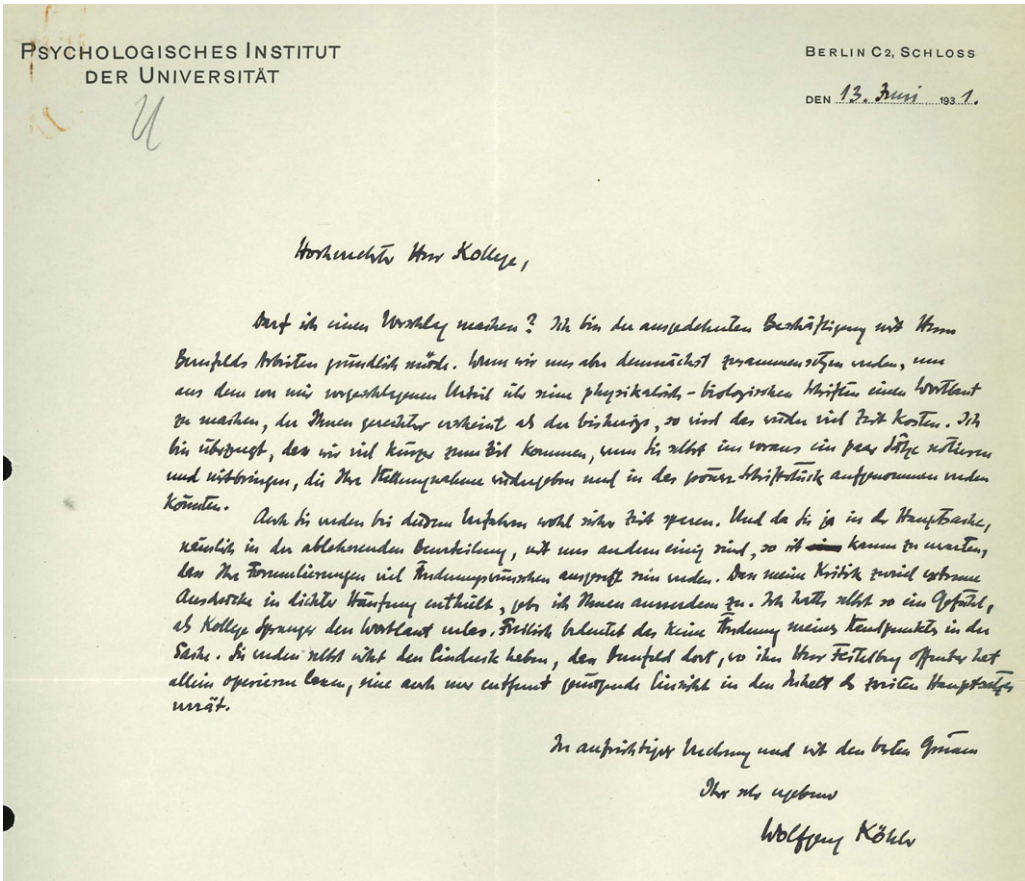 PSYCHOLOGISCHES INSTITUT
DER UNIVERSITÄT
BERLIN C2, SCHLOSS
DEN 13. Juni 1931.
Hochverehrter Herr Kollege,
Darf ich einen Vorschlag machen? Ich bin der ausgedehnten Beschäftigung mit Herrn
Bernfelds Arbeiten gründlich müde. Wenn wir uns aber demnächst zusammensetzen werden, um
aus dem von mir vorgeschlagenen Urteil über seine physikalisch-biologischen Schriften einen Wortlaut
zu machen, der Ihnen gerechter erscheint als der bisherige, so wird das wieder viel Zeit kosten. Ich
bin überzeugt, dass wir viel kürzer zum Ziel kommen, wenn Sie selbst im voraus ein paar Sätze notieren
und mitbringen, die Ihre Stellungnahme wiedergeben und in das Schriftstück aufgenommen werden
könnten.
Auch Sie werden bei diesem Verfahren wohl sicher Zeit sparen. Und da Sie ja in der Hauptsache,
nämlich in der ablehnenden Beurteilung, mit uns andern einig sind, so ist kaum zu erwarten,
dass Ihre Formulierungen viel Änderungswünschen ausgesetzt sein werden. Dass meine Kritik zuviel extreme
Ausdrücke in dichter Häufung enthält, gebe ich Ihnen ausserdem zu. Ich hatte selbst so ein Gefühl,
als Kollege Spranger den Wortlaut verlas. Freilich bedeutet das keine Änderung meines Standpunktes in der
Sache. Sie werden selbst nicht den Eindruck haben, dass Bernfeld dort, wo ihn Herr Feitelberg offenbar hat
allein operieren lassen, eine auch nur entfernt genügende Einsicht in den Inhalt des zweiten Hauptsatzes
verrät.
In aufrichtiger Verehrung und mit den besten Grüssen
Ihr sehr ergebener
Wolfgang Köhler